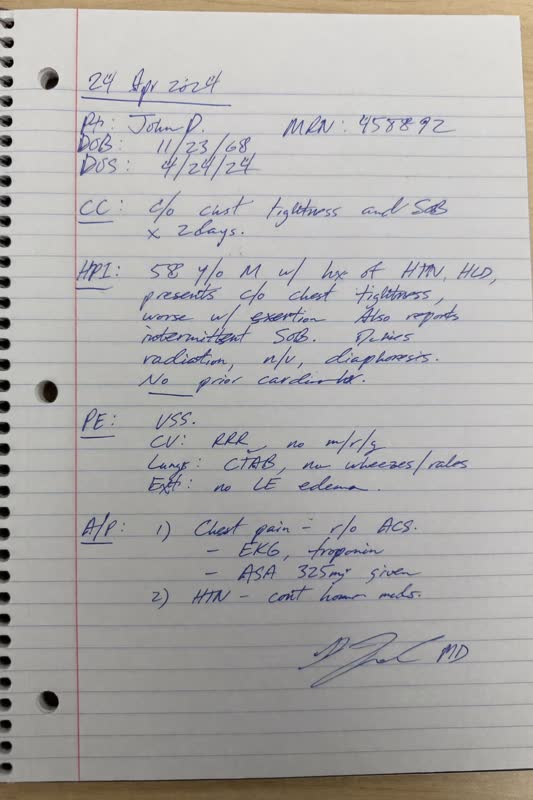 24 Apr 2024
Pt: John D. MRN: 458892
DOB: 11/23/68
DOS: 4/24/24
CC: c/o chest tightness and SOB
x 2 days.
HPI: 58 y/o M w/ hx of HTN, HLD,
presents c/o chest tightness,
worse w/ exertion. Also reports
intermittent SOB. Denies
radiation, n/v, diaphoresis.
No prior cardiac
PE: VSS.
CV: RRR, no m/r/g
Lungs: CTAB, no wheezes/rales
Ext: no LE edema.
A/P: 1) Chest pain - r/o ACS.
- EKG, troponin
- ASA 325mg given
2) HTN - cont home meds.
MD